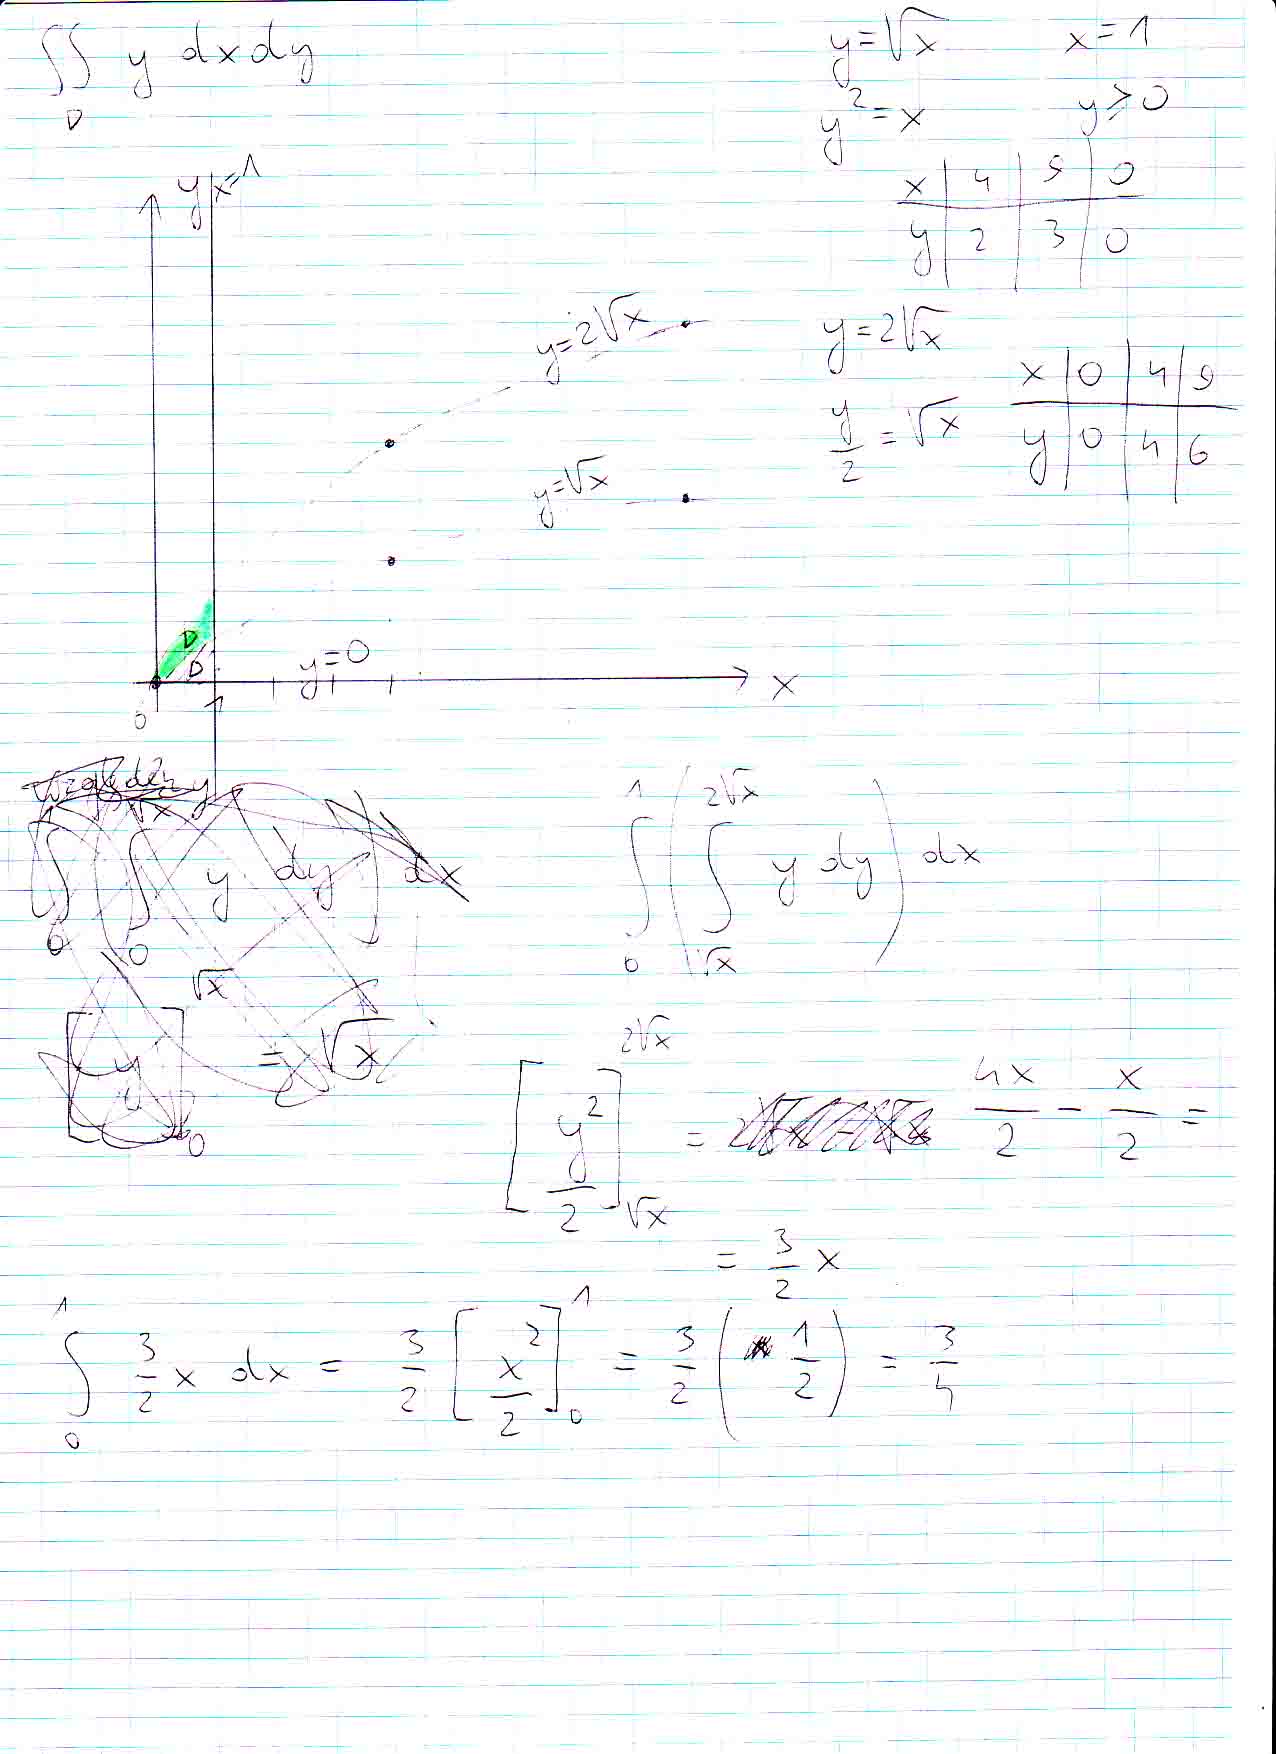 ∬ y dx dy
D
y = √x    x = 1
y² = x    y ≥ 0
x | 4 | 9 | 0
y | 2 | 3 | 0
y = 2√x
y/2 = √x
x | 0 | 4 | 9
y | 0 | 4 | 6
y  x=1
y = 2√x
y = √x
D
D
y = 0
x
0  1
∫₀¹ ( ∫₀^√x y dy ) dx
∫₀¹ ( ∫_√x^2√x y dy ) dx
= √x
[ y²/2 ]_√x^2√x = 4x/2 − x/2 =
= 3/2 x
∫₀¹ 3/2 x dx = 3/2 [ x²/2 ]₀¹ = 3/2 ( 1/2 ) = 3/4